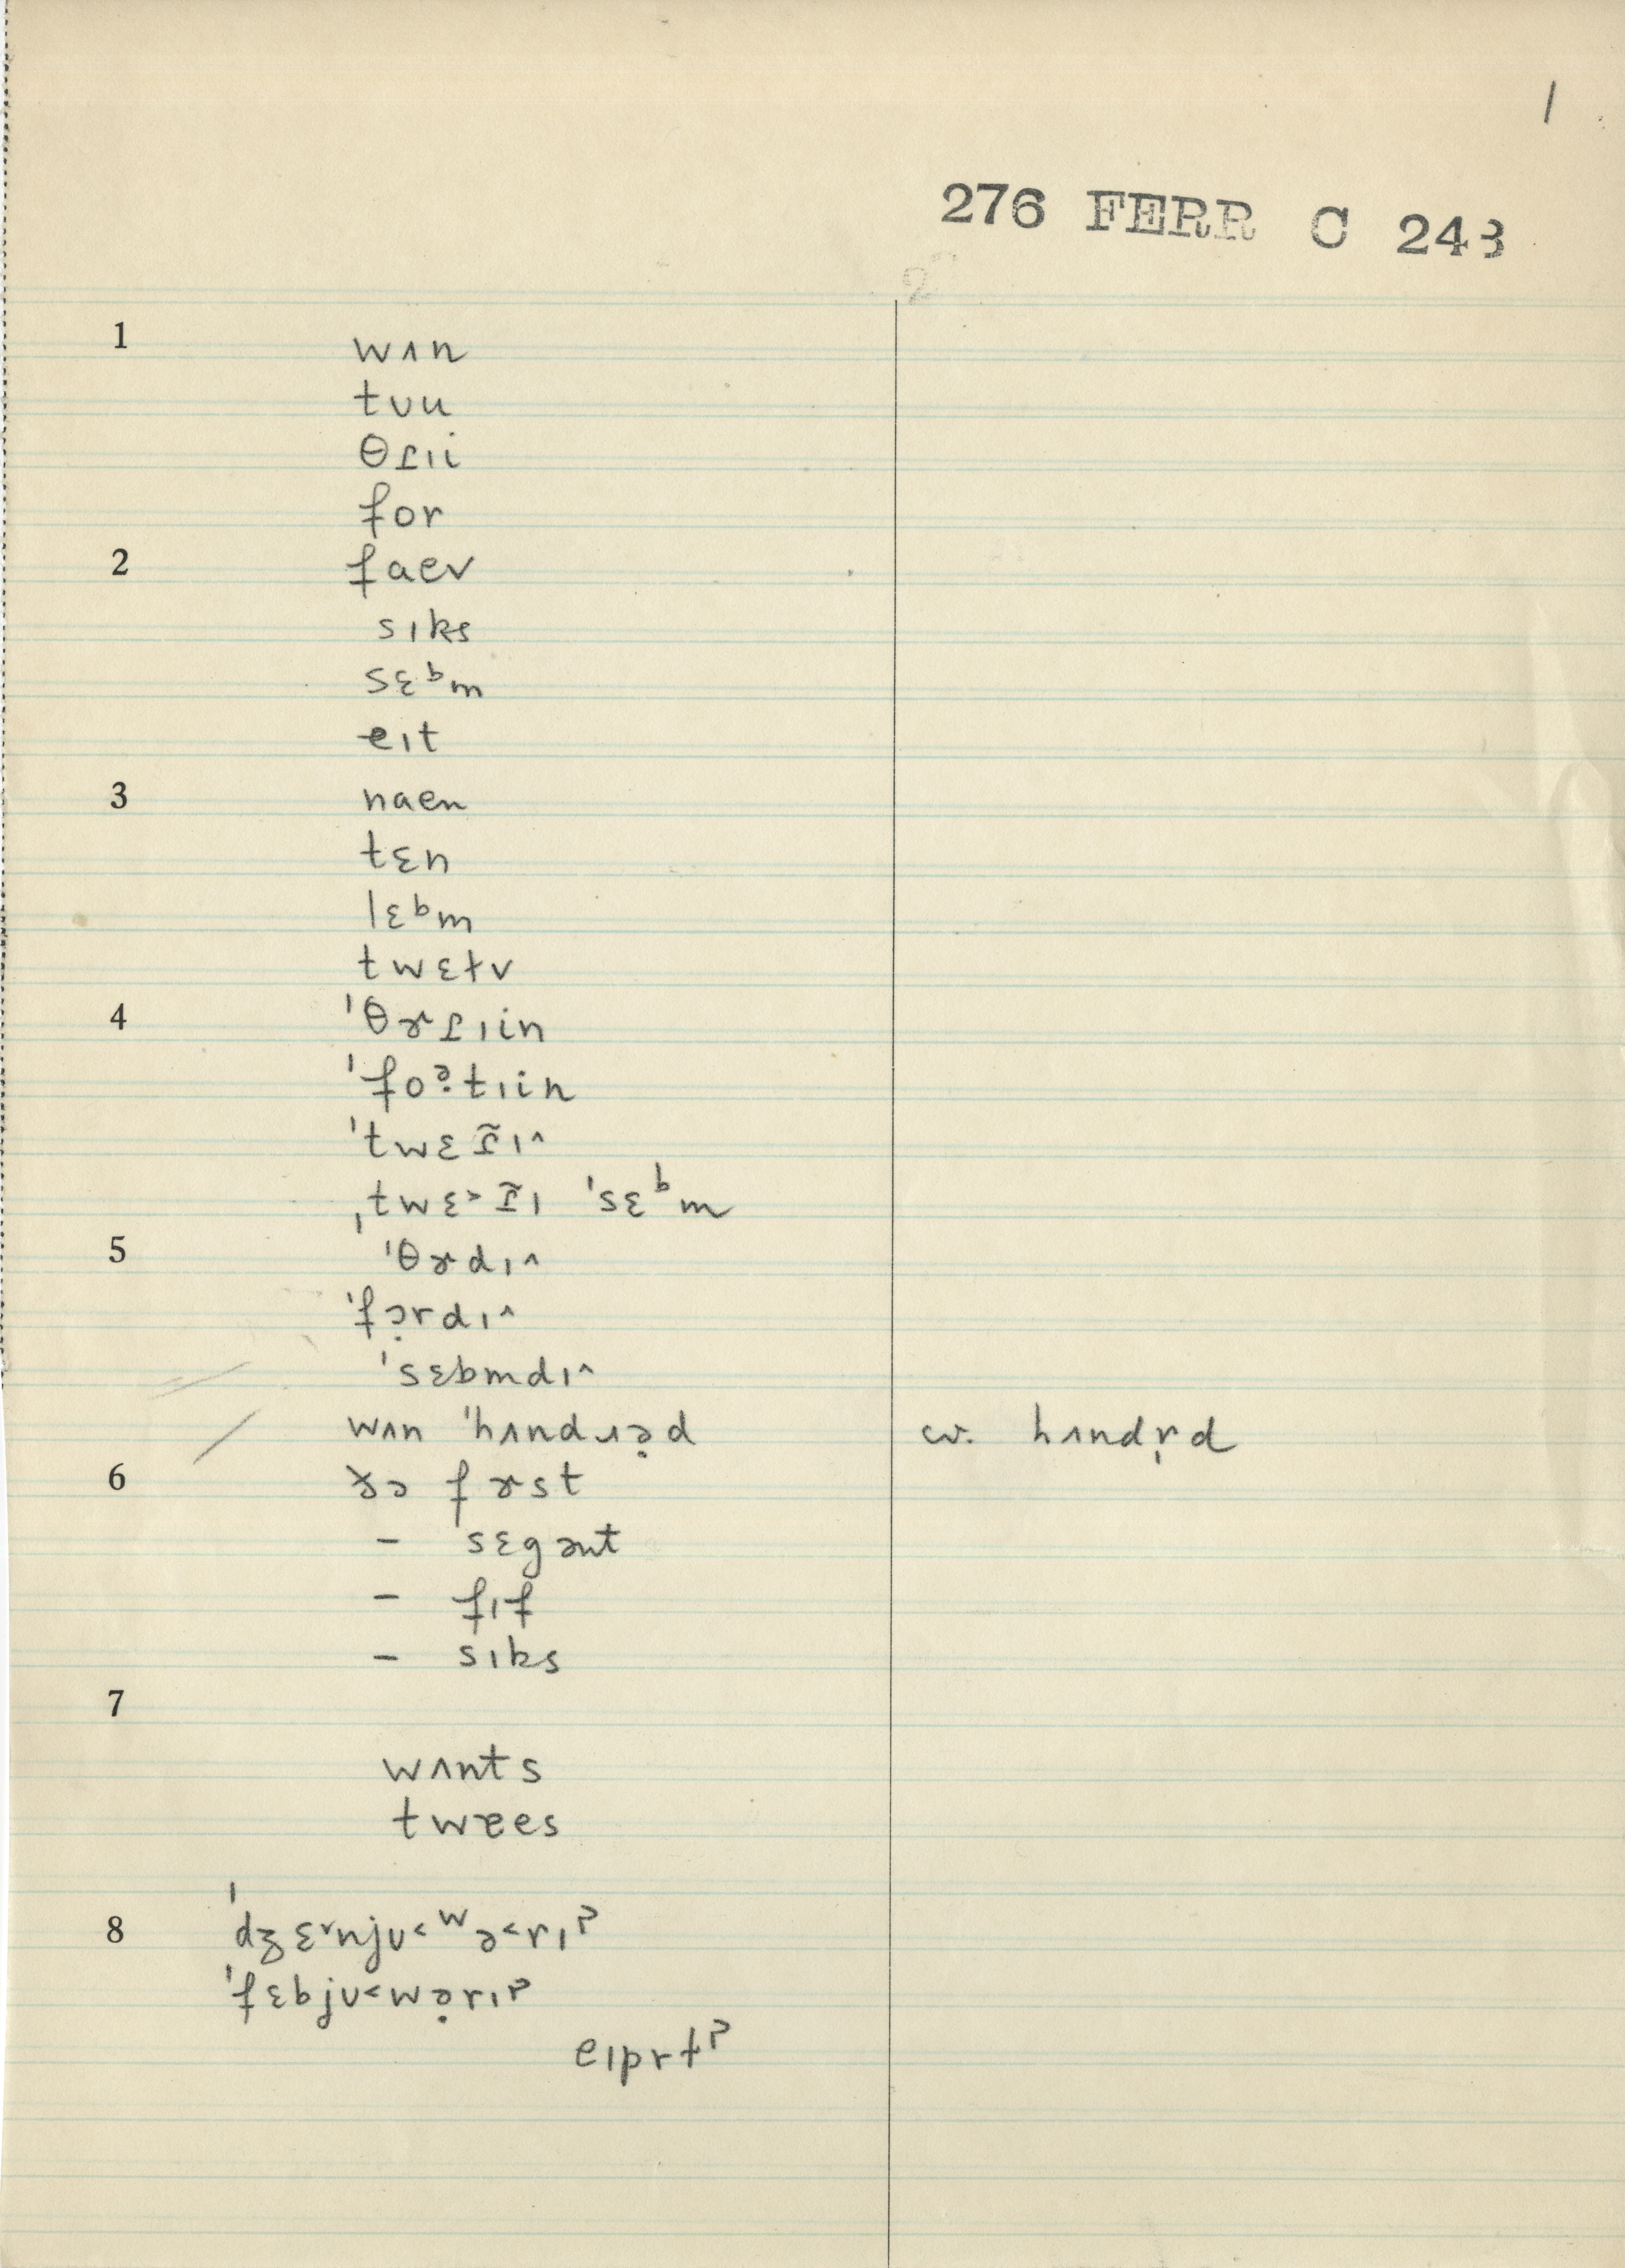 1
276 FERR C 243
1 wʌn
tʊu
θɾɪi
for
2 faev
sɪks
sɛᵇm
eɪt
3 naen
tɛn
lɛᵇm
twɛɫv
4 ˈθɚɾɪin
ˈfoə̣tɪin
ˈtwɛɾ̃ɪ^
ˌtwɛ>ɾ̃ɪ ˈsɛᵇm
5 ˈθɚdɪ^
ˈfɔ̣rdɪ^
ˈsɛbmdɪ^
wʌn ˈhʌndɹə̣d cw. hʌndr̩d
6 ðə fɚst
– sɛgənt
– fɪf
– sɪks
7
wʌnts
twɐes
8 ˈdʒɛᵛnjʊ<ʷə<rɪ
ˈfɛbjʊ<wə̣rɪ
eɪprɫ